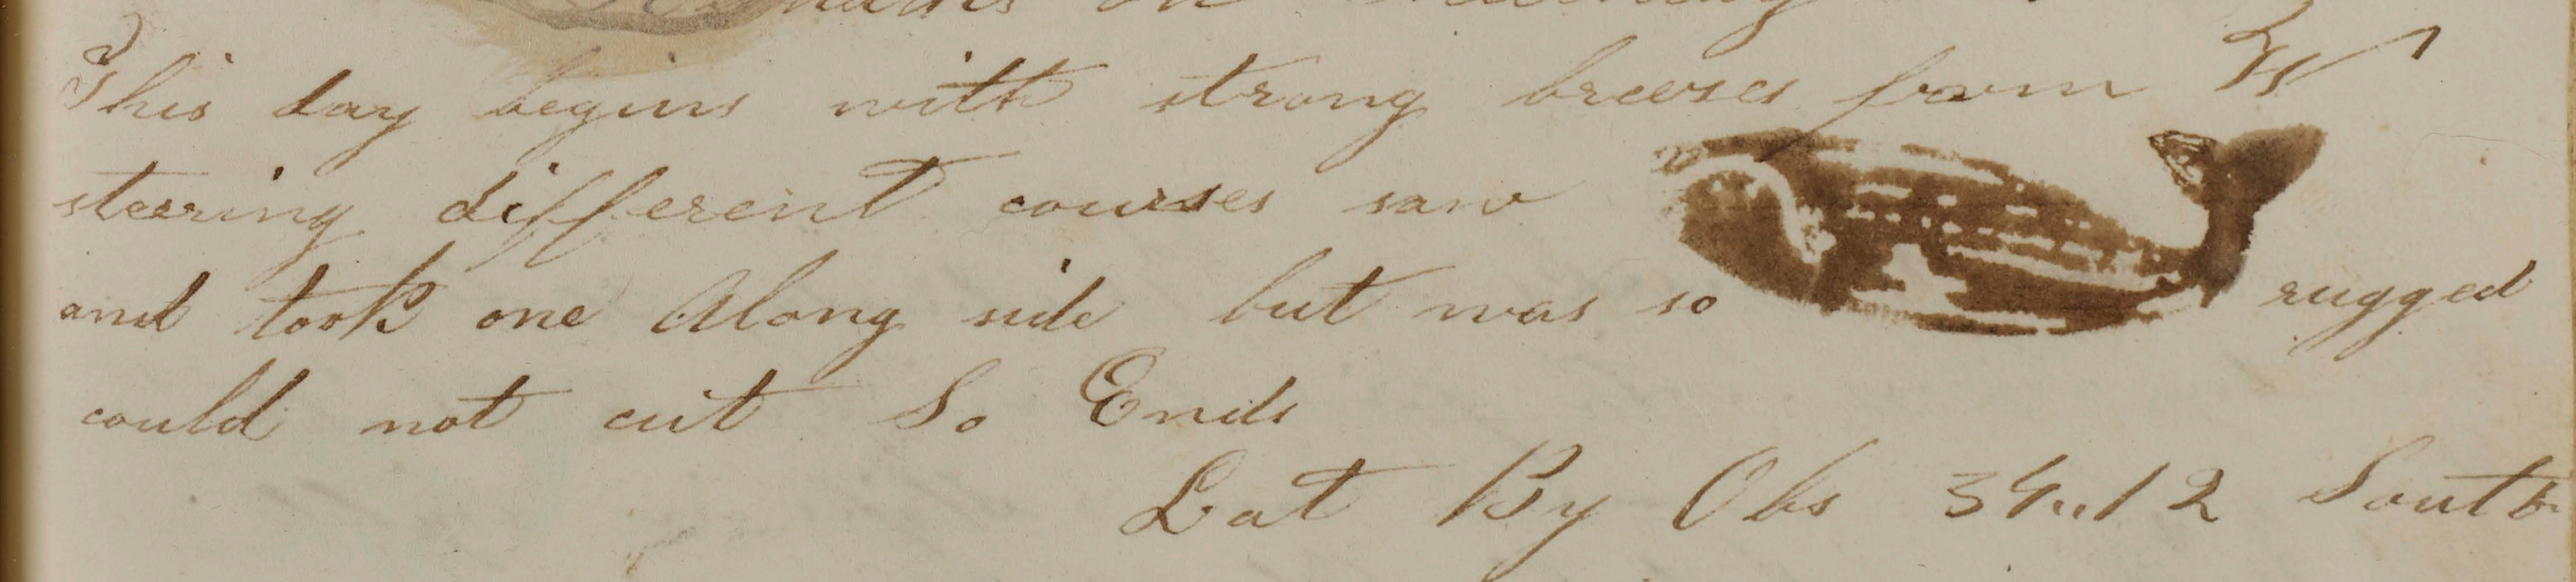 on
This day begins with strong breeses from W
steering different courses saw
and took one Along side but was so rugged
could not cut So Ends
Lat By Obs 34..12 South